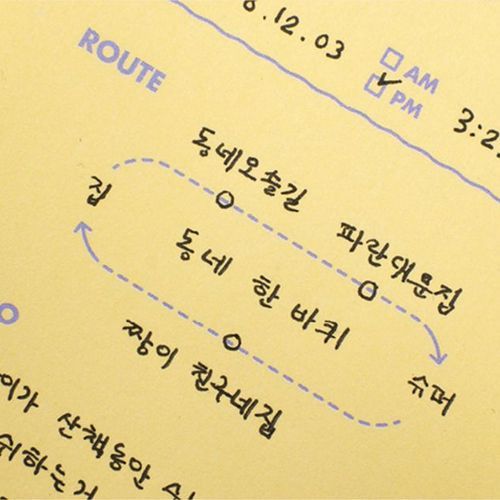 8.12.03
AM
PM
3:2
ROUTE
동네오솔길
집
파란대문집
동네 한 바퀴
짱이 친구네집
슈퍼
이가 산책동안
쉬하는거